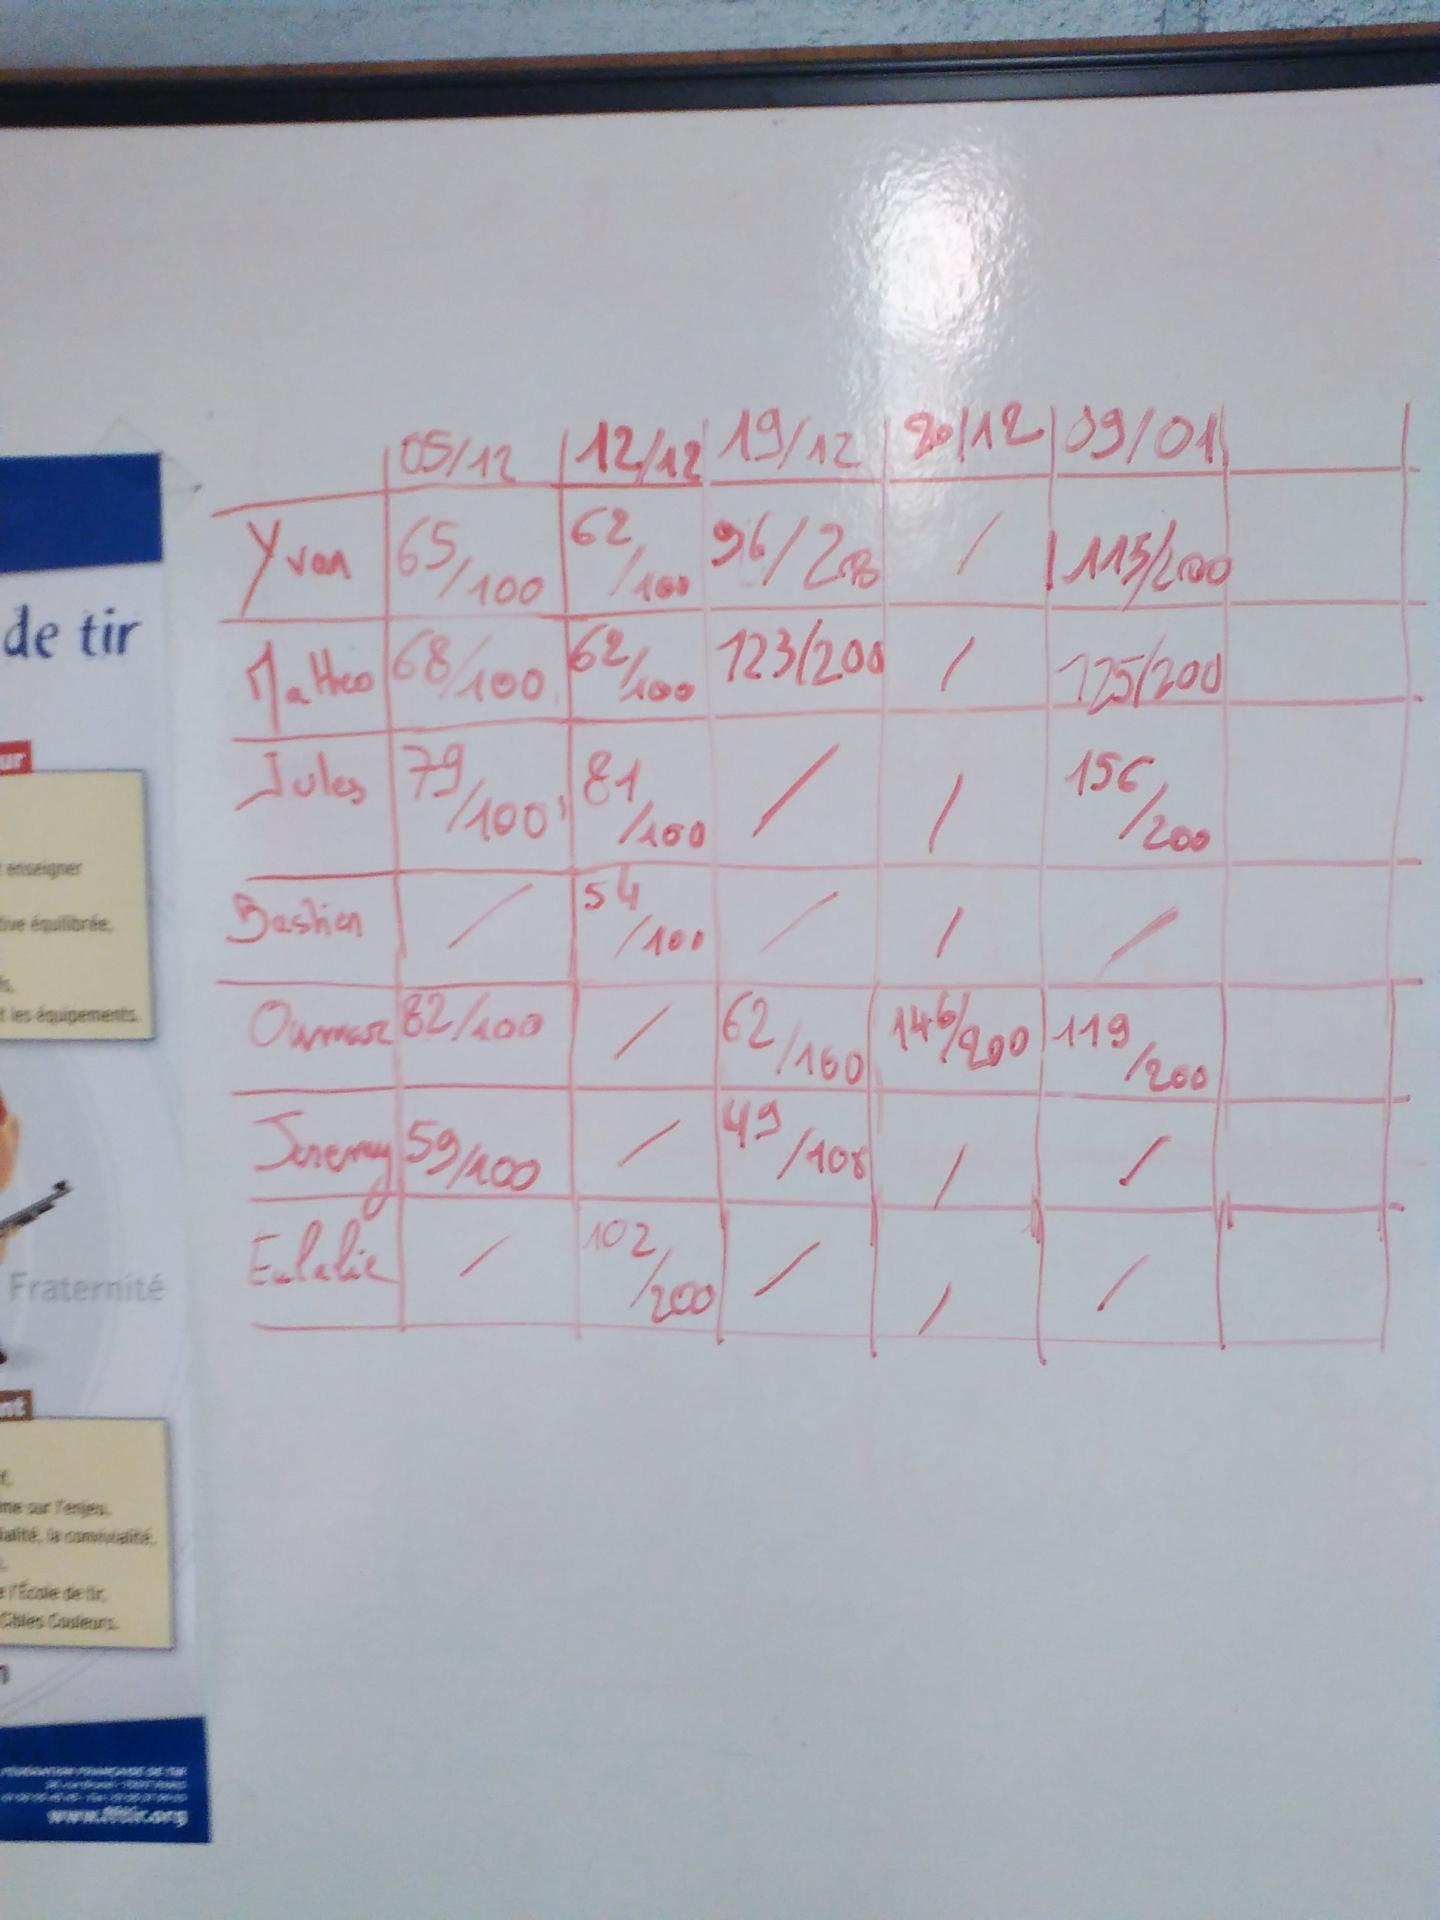 05/12 12/12 19/12 20/12 09/01
Yvan 65/100 62/100 96/200 / 115/200
Matteo 68/100 62/100 123/200 / 125/200
Jules 79/100 81/100 / / 156/200
Bastien / 54/100 / / /
Oumar 82/100 / 62/100 146/200 119/200
Jeremy 59/100 / 49/100 / /
Eulalie / 102/200 / / /
de tir
ur
enseigner
tive équilibrée,
t les équipements.
Fraternité
nt
me sur l'enjeu,
ialité, la convivialité,
e l'École de tir,
Cibles Couleurs.
n
FÉDÉRATION FRANÇAISE DE TIR
www.fftir.org